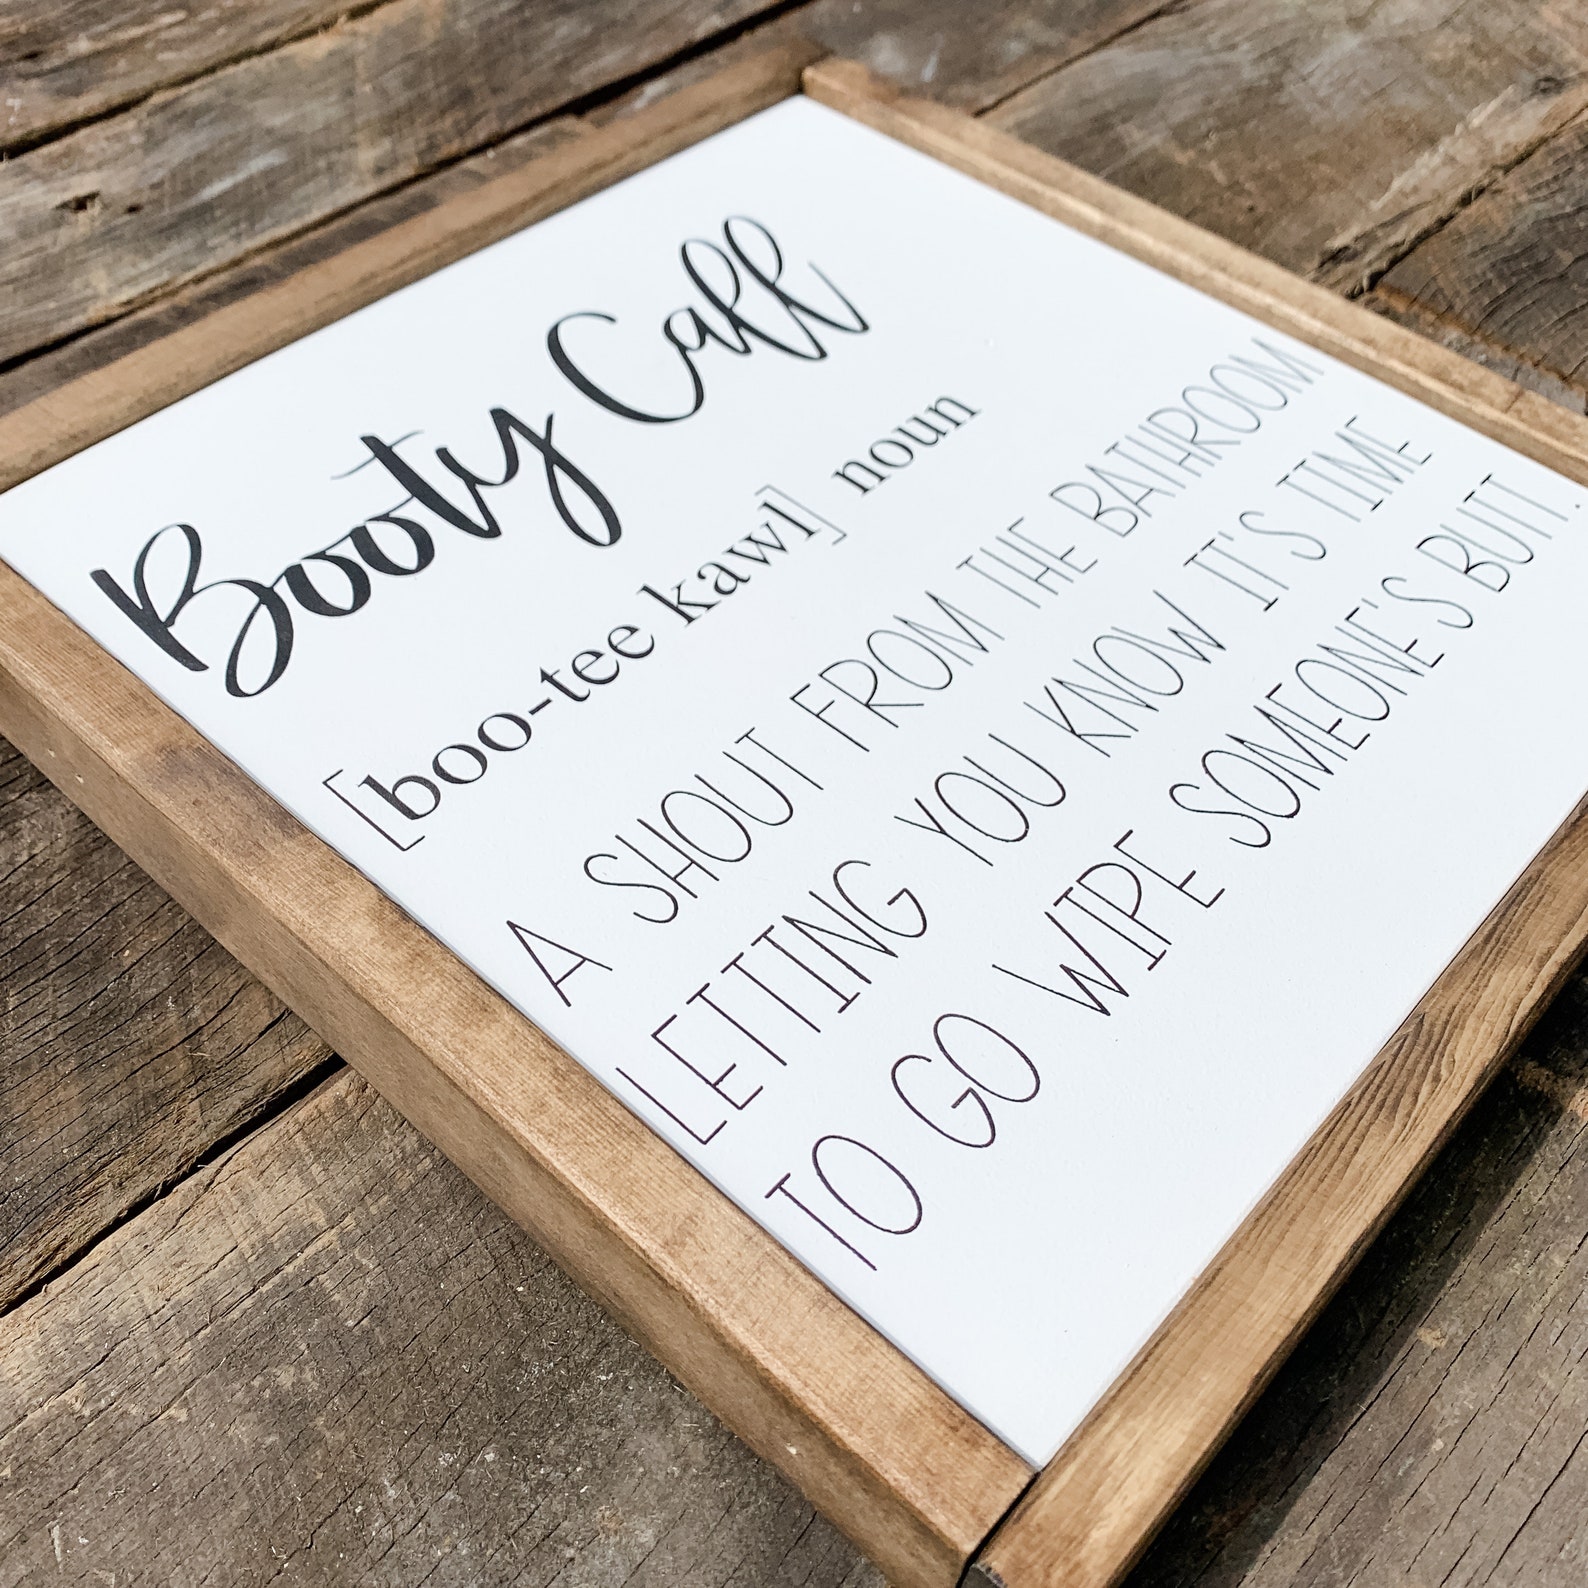 Booty Call
[boo-tee kawl] noun
A SHOUT FROM THE BATHROOM
LETTING YOU KNOW IT'S TIME
TO GO WIPE SOMEONE'S BUTT.